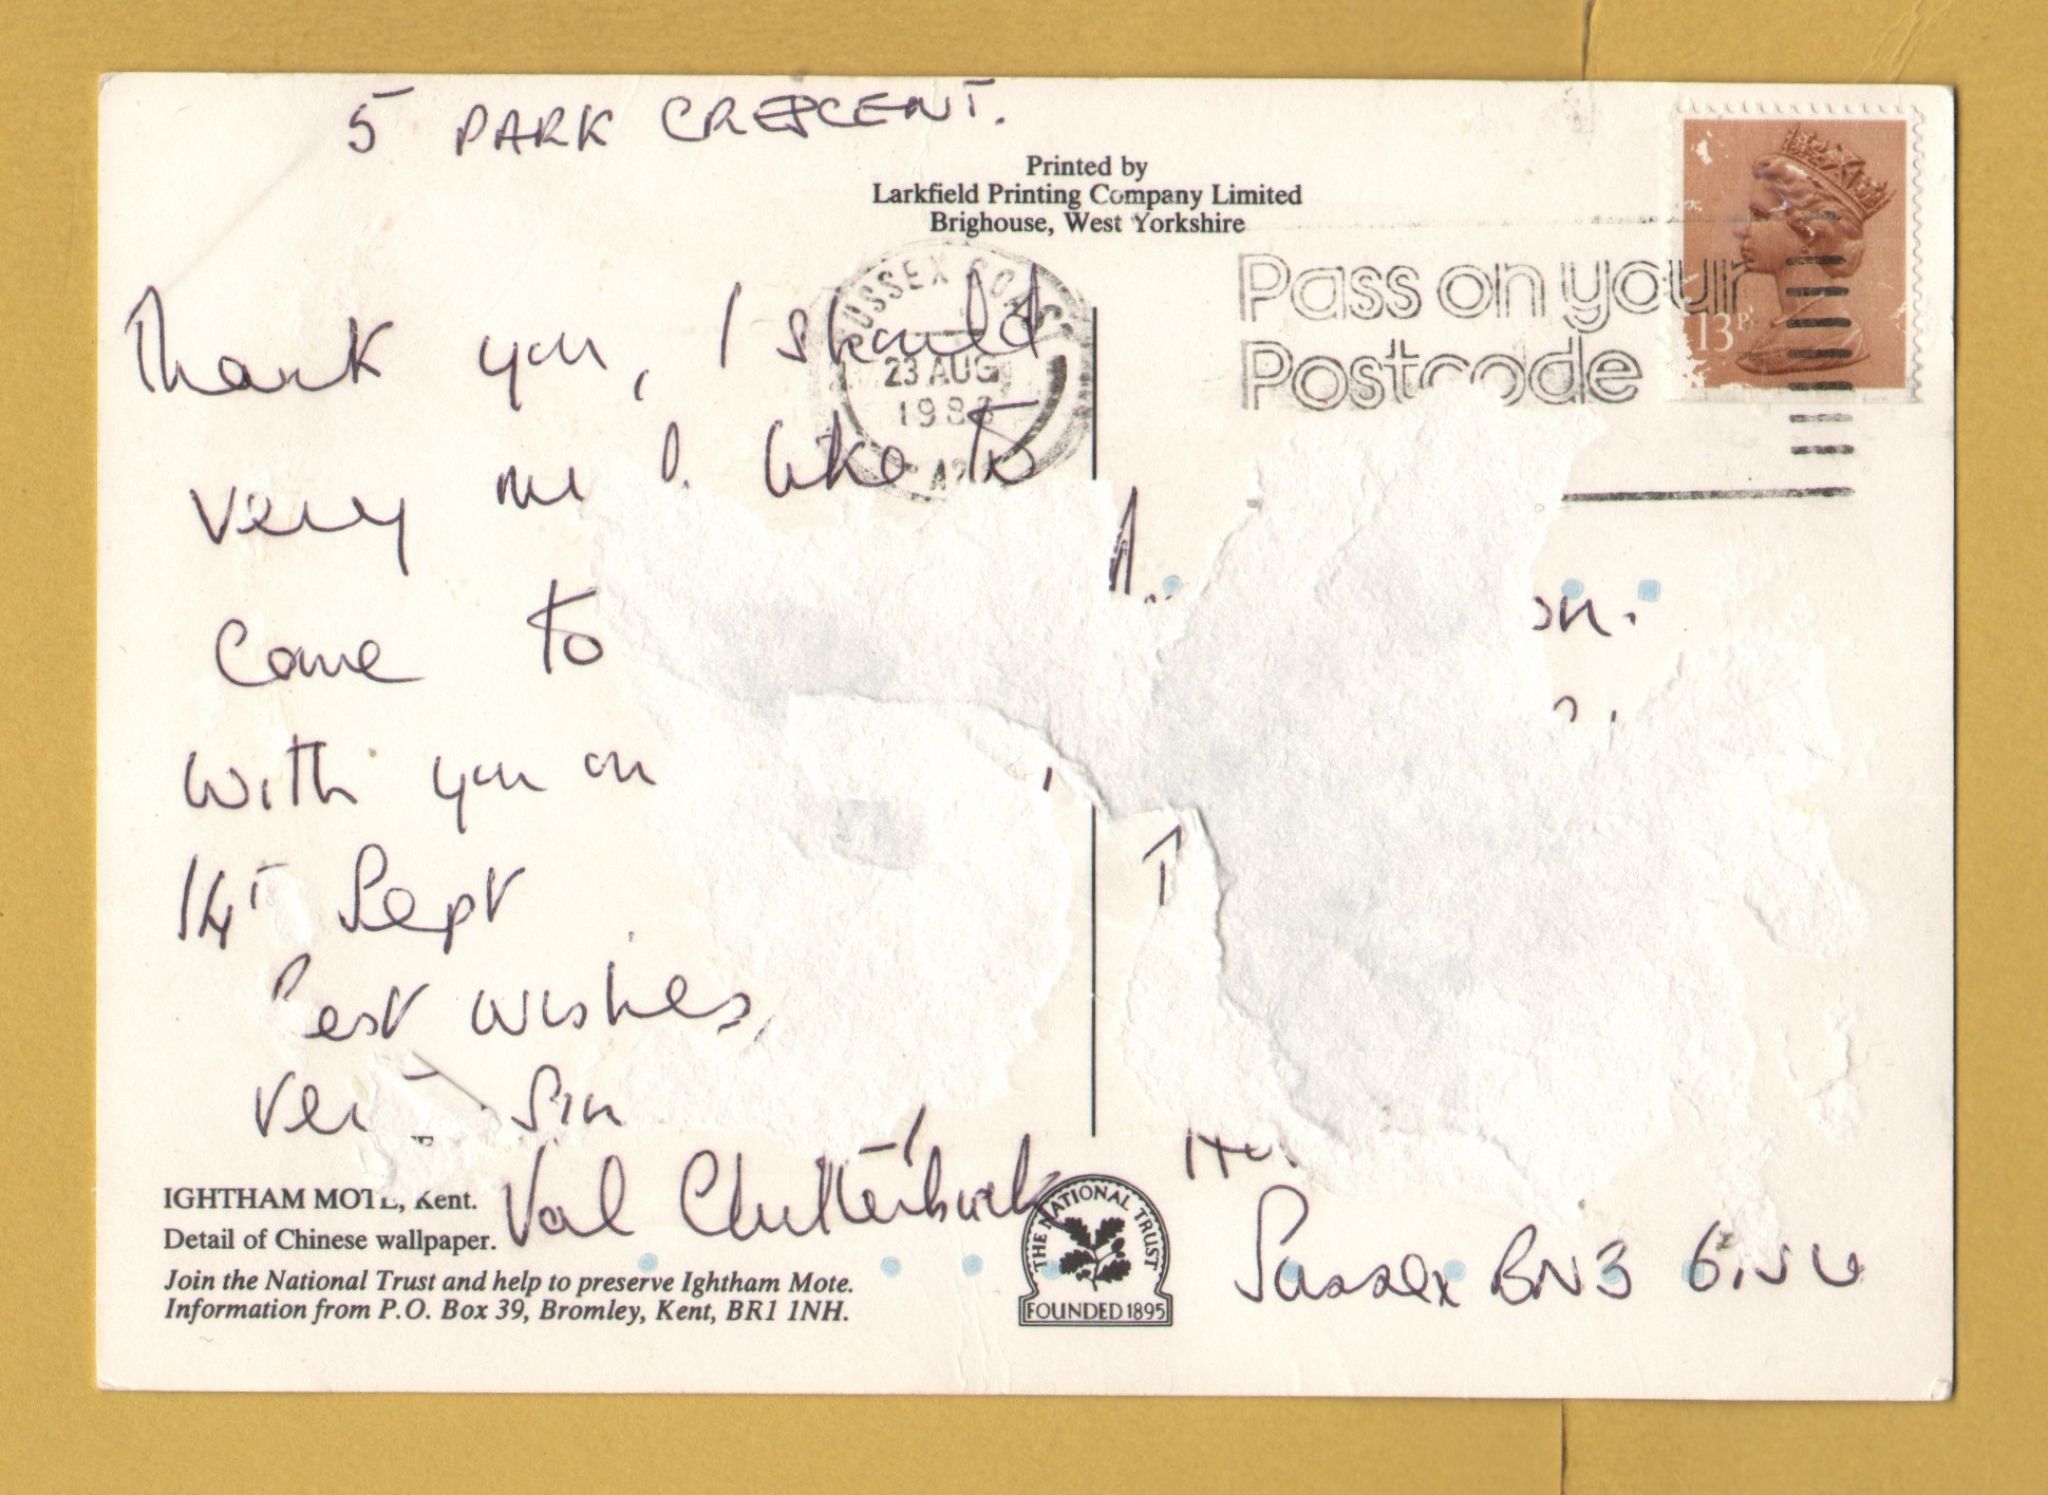 5 PARK CRESCENT.
Printed by
Larkfield Printing Company Limited
Brighouse, West Yorkshire
SUSSEX COAST
23 AUG
A2
Pass on your
Postcode
13P
Thank you, I should
very like to
come to
with you on
14T Sept
Best wishes,
Val Clutterbuck
IGHTHAM MOTE, Kent.
Detail of Chinese wallpaper.
Join the National Trust and help to preserve Ightham Mote.
Information from P.O. Box 39, Bromley, Kent, BR1 1NH.
THE NATIONAL TRUST
FOUNDED 1895
Sussex BN3